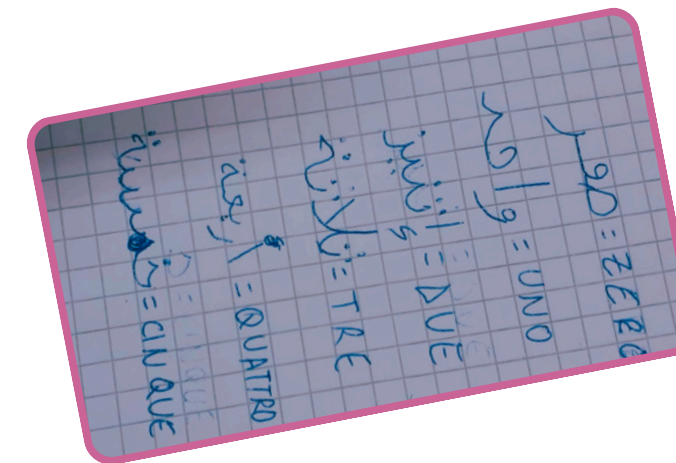 صفر = ZERO
واحد = UNO
اثنين = DUE
ثلاثة = TRE
أربعة = QUATTRO
خمسة = CINQUE